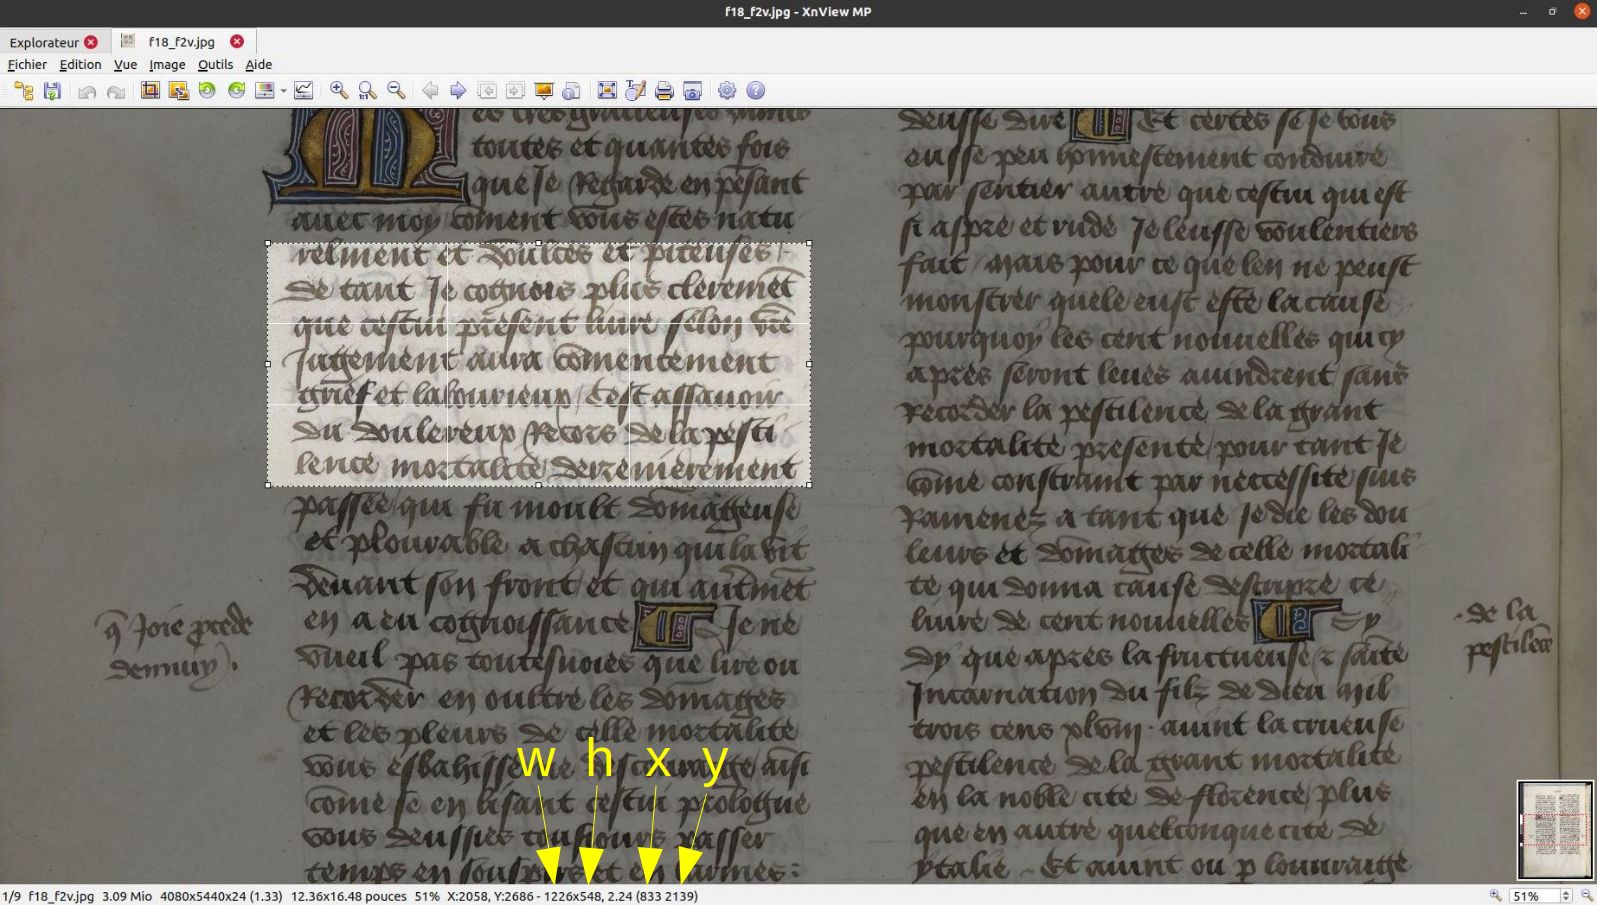 f18_f2v.jpg - XnView MP
Explorateur
f18_f2v.jpg
Fichier Edition Vue Image Outils Aide
es tres gratieuses dames
toutes et quantes fois
que Je Regarde en pēsant
auec moy cōment vous estes natu
relment et doulces et piteuses
de tant Je cognois plus cleremēt
que cestui present liure selon vr̄e
Jugement aura cōmencement
grief et labourieux / Cest assauoir
du doulereux Recors de la pesti
lence mortalite derrenierement
passee / qui fu moult dōmageuse
et plourable a chascun qui la vit
deuant son front et qui autremēt
en a eu cognoissance Je ne
vueil pas toutesuoies que lire ou
Recorder en oultre les dōmages
et les pleurs de celle mortalite
vous esbahisse ne descourage aīsi
cōme se en lisant cestui prologue
vous deussies tousiours passer
temps en souspirs et en larmes :
q̄ Joie p̄cede
dennuy).
deusse dire Et certes se Je vous
eusse peu honnestement conduire
par sentier autre que cestui qui est
si aspre et rude Je leusse voulentiers
fait / Mais pour ce que len ne peust
monstrer quele eust este la cause
pourquoy les cent nouuelles qui cy
apres seront leues auindrent sans
Recorder la pestilence de la grant
mortalite presente / pour tant Je
cōme constraint par neccessite suis
Ramenez a tant que Je die les dou
leurs et dōmages de celle mortali
te qui donna cause descripre ce
liure de cent nouuelles Je
dy que apres la fructueuse z saīte
Incarnation du filz de dieu Mil
trois cens xlviij . auint la crueuse
pestilence de la grant mortalite
en la noble cite de florence / plus
que en autre quelconque cite de
ytalie . Et auint ou p louuraige
de la
pestilēce
w h x y
1/9 f18_f2v.jpg 3.09 Mio 4080x5440x24 (1.33) 12.36x16.48 pouces 51% X:2058, Y:2686 - 1226x548, 2.24 (833 2139)
51%